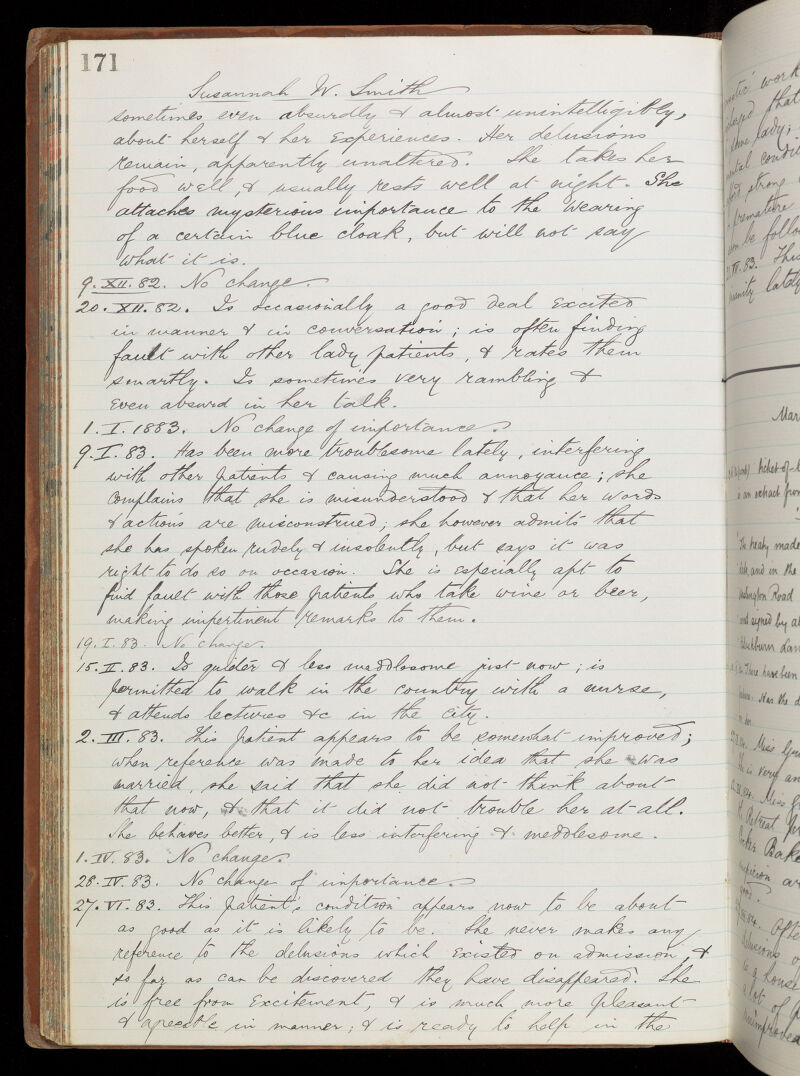 171
Susannah W. Smith
sometimes even absurdly & almost unintelligibly,
about herself & her experiences. Her delusions
remain, apparently unaltered. She takes her
food well, & usually rests well at night. She
attaches mysterious importance to the wearing
of a certain blue cloak, but will not say
what it is.
9. XII. 82. No change.
20. XII. 82. Is occasionally a good deal excited
in manner & in conversation; is often finding
fault with other lady patients, & rates them
smartly. Is sometimes very rambling &
even absurd in her talk.
1. I. 1883. No change of importance.
9. I. 83. Has been more troublesome lately, interfering
with other patients & causing much annoyance; she
complains that she is misunderstood & that her words
& actions are misconstrued; she however admits that
she has spoken rudely & insolently, but says it was
right to do so on occasion. She is especially apt to
find fault with those patients who take wine or beer,
making impertinent remarks to them.
19. I. 83. No change.
15. II. 83. Is quieter & less meddlesome just now; is
permitted to walk in the country with a nurse,
& attends lectures &c in the city.
2. III. 83. This patient appears to be somewhat improved;
when reference was made to her idea that she was
married, she said that she did not think about
that now, & that it did not trouble her at all.
She behaves better, & is less interfering & meddlesome.
1. IV. 83. No change.
28. IV. 83. No change of importance.
27. VI. 83. This patient's condition appears now to be about
as good as it is likely to be. She never makes any
reference to the delusions which existed on admission, &
so far as can be discovered they have disappeared. She
is free from excitement, & is much more pleasant
& agreeable in manner; & is ready to help in the
work
that
lady;
strong
premature
be follo
83. This
lately
Mar
ticket-of-l
is an extract from
The treaty made
and in the
Road
signed by
Blackburn Lan
There have been
Has the d
Miss
is very an
Miss
Retreat
Bake
good.
delusions
a house
a lot of
unimproved